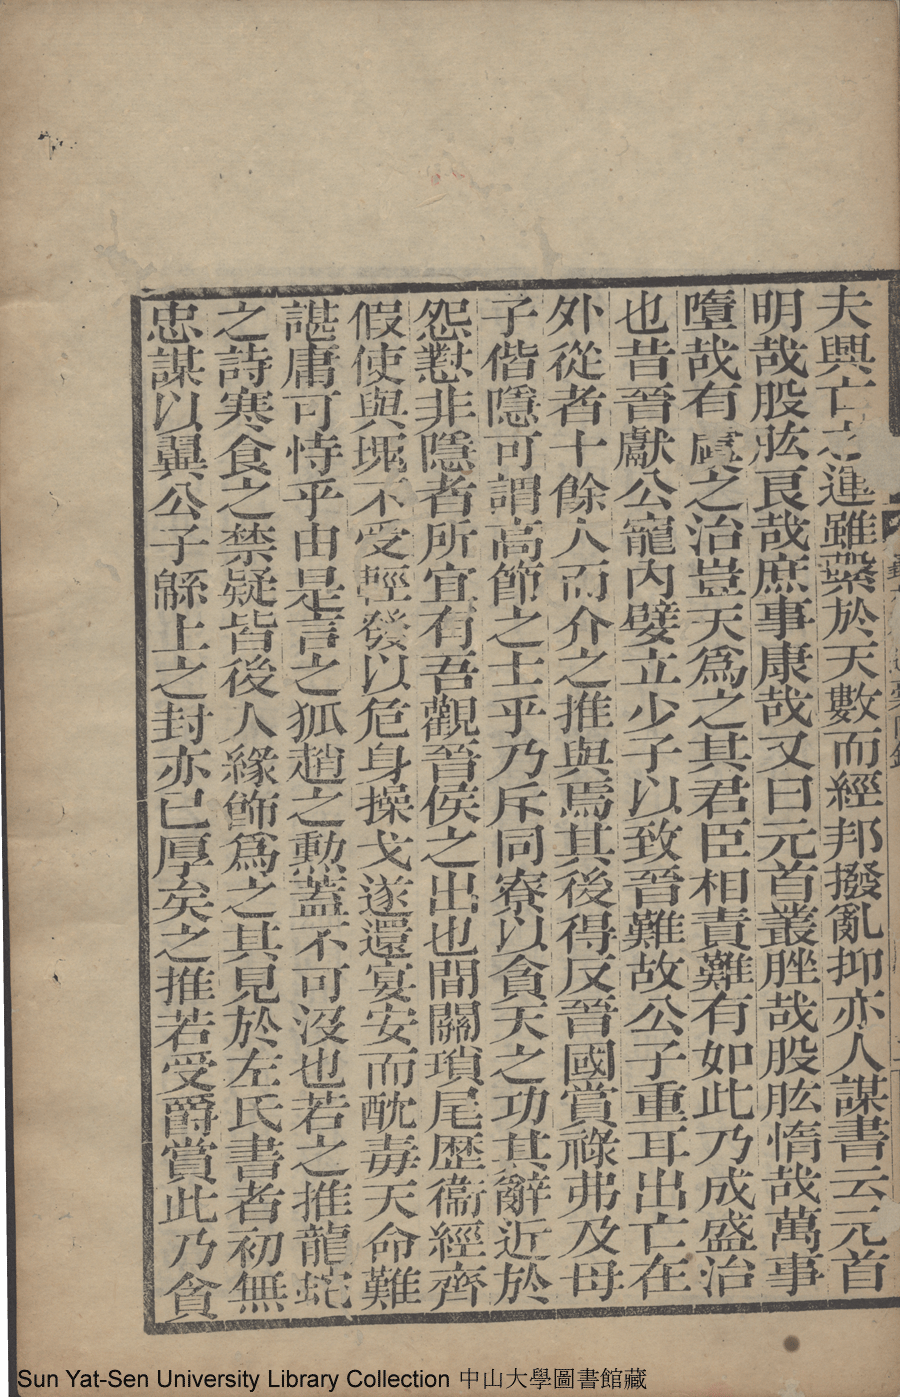 夫興亡之運雖繫於天數而經邦撥亂抑亦人謀書云元首
明哉股肱良哉庶事康哉又曰元首叢脞哉股肱惰哉萬事
墮哉有虞之治豈天爲之其君臣相責難有如此乃成盛治
也昔晉獻公寵內嬖立少子以致晉難故公子重耳出亡在
外從者十餘人而介之推與焉其後得反晉國賞祿弗及母
子偕隱可謂高節之士乎乃斥同寮以貪天之功其辭近於
怨懟非隱者所宜有吾觀晉侯之出也間關瑣尾歷衞經齊
假使與塊不受輕發以危身操戈遂還宴安而酖毒天命難
諶庸可恃乎由是言之狐趙之勲蓋不可沒也若之推龍蛇
之詩寒食之禁疑皆後人緣飾爲之其見於左氏書者初無
忠謀以翼公子緜上之封亦已厚矣之推若受爵賞此乃貪
Sun Yat-Sen University Library Collection 中山大學圖書館藏